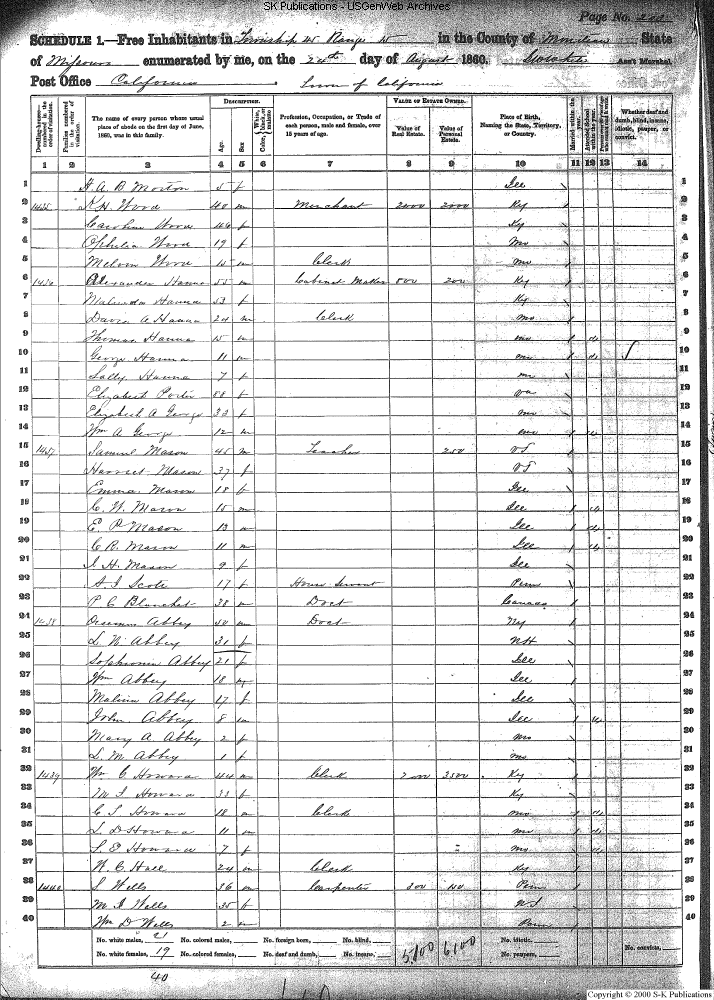 SK Publications - USGenWeb Archives
Page No.
SCHEDULE 1.—Free Inhabitants in Township 45 Range 15 in the County of Moniteau State
of Missouri enumerated by me, on the 24th day of August 1860. Ass't Marshal.
Post Office California Town of California
Dwelling-houses—numbered in the order of visitation.
Families numbered in the order of visitation.
The name of every person whose usual place of abode on the first day of June, 1860, was in this family.
DESCRIPTION.
Age.
Sex
Color, White, black, or mulatto.
Profession, Occupation, or Trade of each person, male and female, over 15 years of age.
VALUE OF ESTATE OWNED.
Value of Real Estate.
Value of Personal Estate.
Place of Birth, Naming the State, Territory, or Country.
Married within the year.
Whether deaf and dumb, blind, insane, idiotic, pauper, or convict.
1 2 3 4 5 6 7 8 9 10 11 12 13 14
1 H. A. B. Morton 5 f Ill 1
2 H. Wood 40 m Merchant 2000 2000 Ky 2
3 Caroline Wood f Ky 3
4 Ophelia Wood 19 f Mo 4
5 Melvin Wood 15 m Clerk Mo 5
6 1436 Alexander Hanna 55 m Cabinet Maker 500 200 Ky 6
7 Hanna 53 f Ky 7
8 David A Hanna 24 m Clerk Mo 8
9 Thomas Hanna 15 m Mo 9
10 George Hanna 11 m Mo 10
11 Sally Hanna 7 f Mo 11
12 Elizabeth Porter 88 f Va 12
13 Elizabeth A George 33 f Mo 13
14 Wm A George 12 m Mo 14
15 1437 Samuel Mason 45 m Teacher 250 VT 15
16 Harriet Mason 37 f VT 16
17 Emma Mason 18 f Ill 17
18 C. W. Mason 15 m Ill 18
19 E. P. Mason 13 m Ill 19
20 C. R. Mason 11 m Ill 20
21 I. H. Mason 9 f Ill 21
22 A. J. Scott 17 f House Servant Penn 22
23 P. C. Blanchet 38 m Doct Canada 23
24 1438 Abbey 50 m Doct NY 24
25 L. N. Abbey 31 f NH 25
26 Sophronia Abbey 21 f Ill 26
27 Wm Abbey 18 m Ill 27
28 Malina Abbey 17 f Ill 28
29 John Abbey 8 m Ill 29
30 Mary A. Abbey 2 f Mo 30
31 L. M. Abbey 1 f Mo 31
32 1439 Wm C Howard 44 m Clerk 2000 3500 Ky 32
33 M. J. Howard 33 f Ky 33
34 C. S. Howard 18 m Clerk Mo 34
35 L. D. Howard 11 m Mo 35
36 S. E. Howard 7 f Mo 36
37 W. C. Hall 24 m Clerk Ky 37
38 1440 S Wells 36 m Carpenter 300 100 Penn 38
39 M. A Wells 35 f N.J 39
40 Wm D Wells 2 m Penn 40
No. white males, 21 No. colored males, No. foreign born, No. blind, 5,800 6100 No. idiotic,
No. white females, 19 No. colored females, No. deaf and dumb, No. insane, No. paupers, No. convicts,
40
Copyright © 2000 S-K Publications